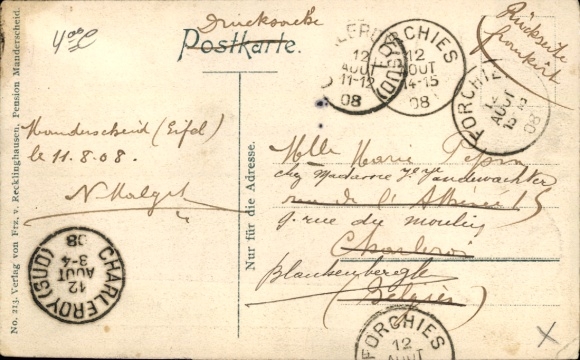 Drucksache
Postkarte.
Rückseite
frankirt
Manderscheid (Eifel)
le 11.8.08.
N Malget
Nur für die Adresse.
Melle Marie Pepin
chez Madame Vve Vandewachter
rue de l'Athénée 15
9. rue du moulin
Charleroi
Blankenberghe
(Belgien)
No. 213. Verlag von Frz. v. Recklinghausen, Pension Manderscheid.
CHARLEROY (SUD)
12
AOUT
11-12
08
FORCHIES
12
AOUT
14-15
08
FORCHIES
12
AOUT
08
CHARLEROY (SUD)
12
AOUT
3-4
08
FORCHIES
12
AOUT